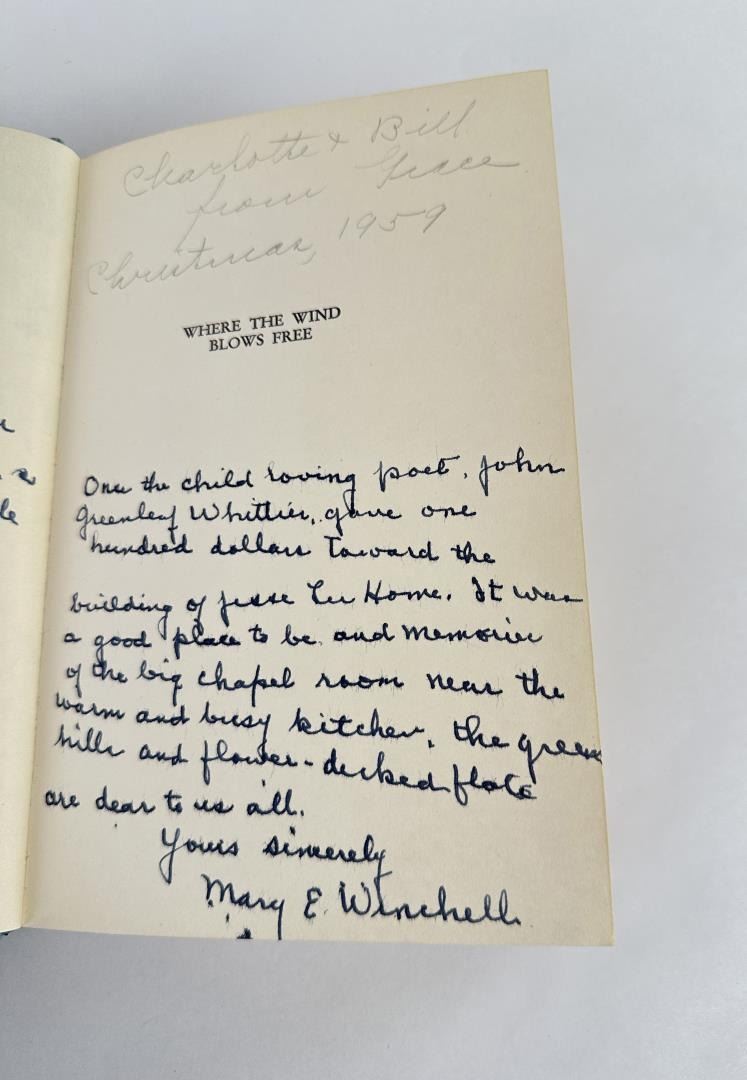 Charlotte & Bill
from Grace
Christmas, 1959
WHERE THE WIND
BLOWS FREE
Once the child loving poet, John
Greenleaf Whittier, gave one
hundred dollars toward the
building of Jesse Lee Home. It was
a good place to be and memories
of the big chapel room near the
warm and busy kitchen, the green
hills and flower-decked flats
are dear to us all.
Yours sincerely
Mary E. Winchell.